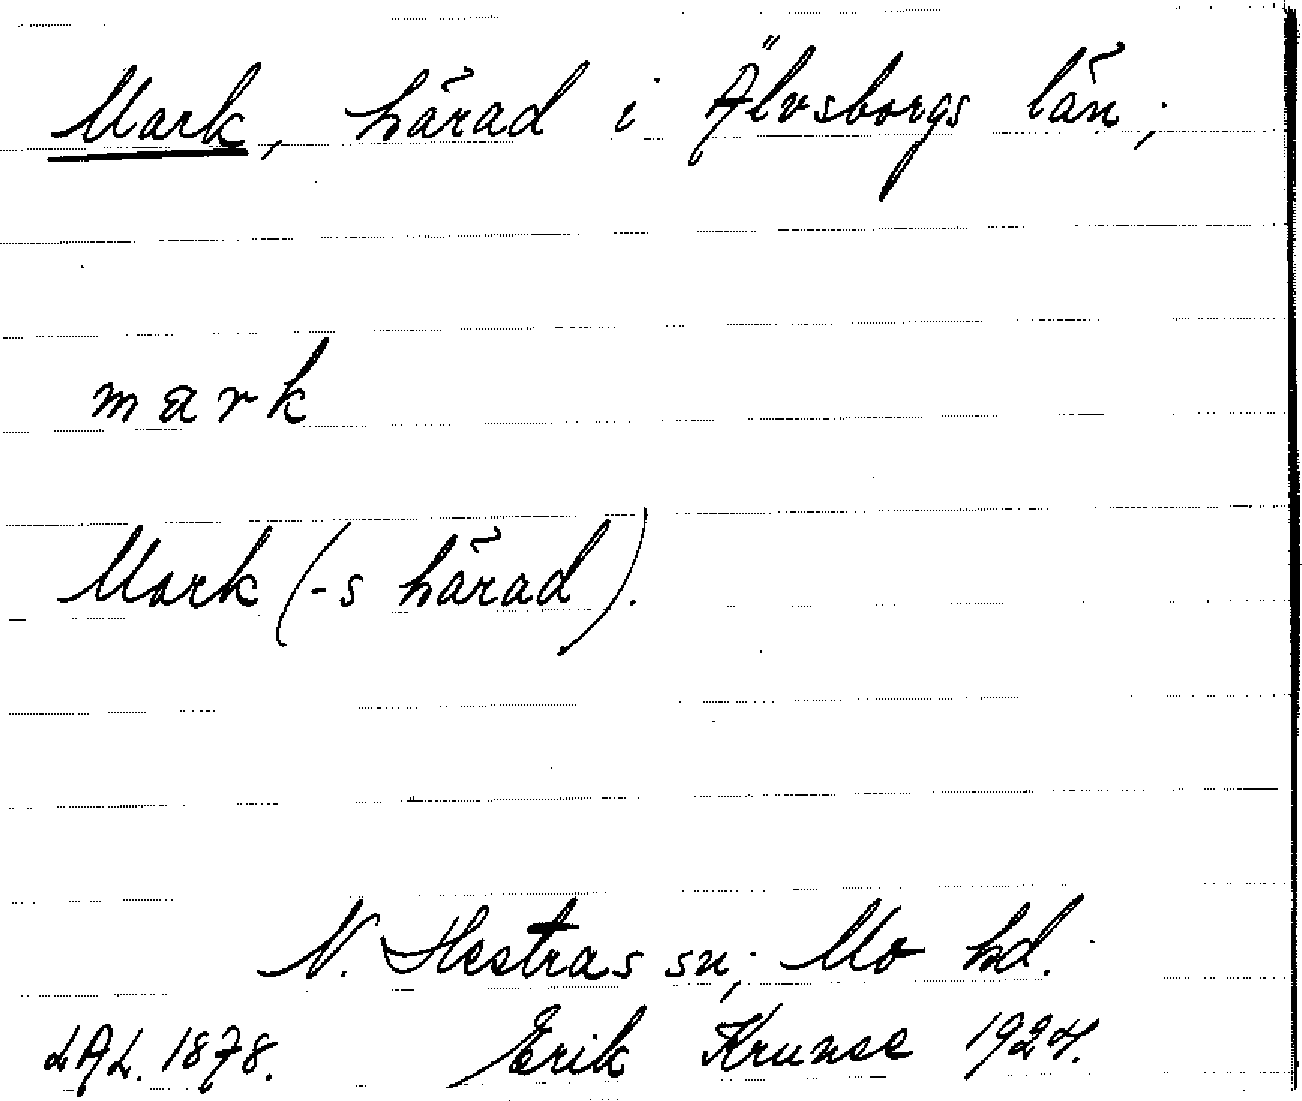 Mark, härad i Älvsborgs län;
mark
Mark (-s härad).
N. Hestras sn; Mo hd.
LAL. 1878. Erik Krunse 1924.